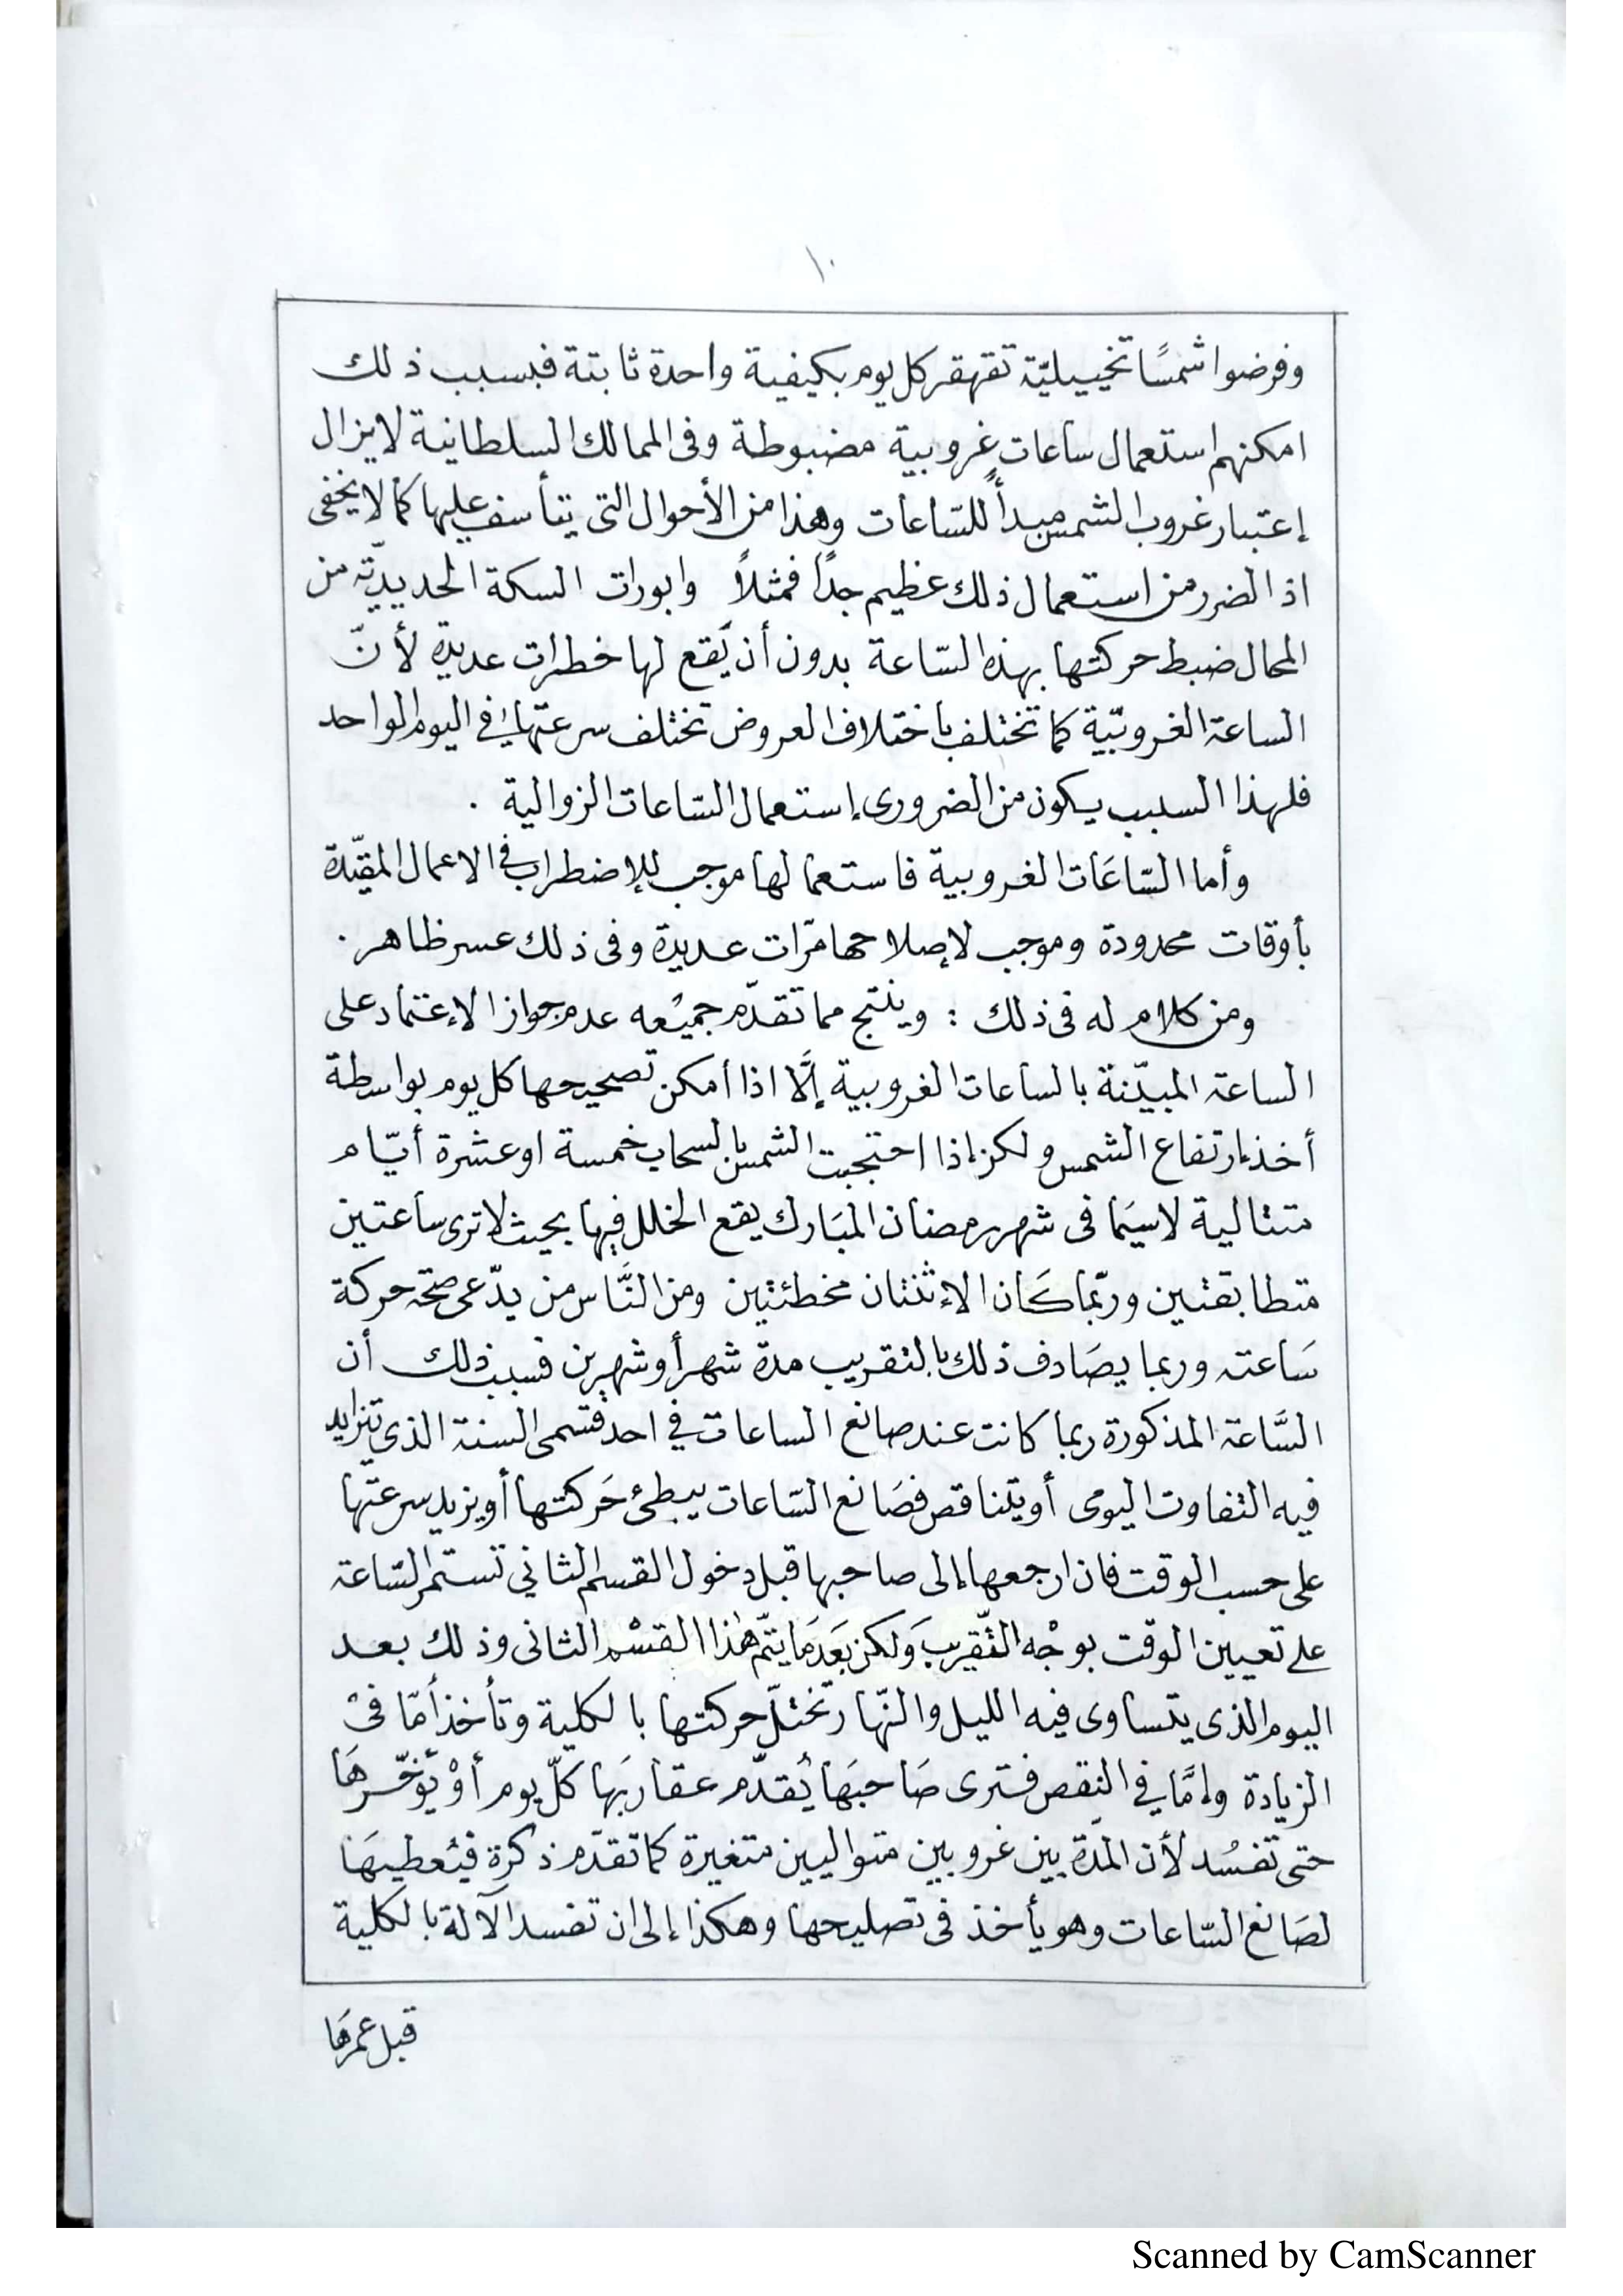 ١٠
وفرضوا شمسًا تخييليّة تقهقر كل يوم بكيفية واحدة ثابتة فبسبب ذلك
امكنهم استعمال ساعات غروبية مضبوطة وفى الممالك السلطانية لا يزال
إعتبار غروب الشمس مبدأً للسّاعات وهذا من الأحوال التى يتأسف عليها كما لا يخفى
اذ الضرر من استعمال ذلك عظيم جدًا فمثلاً وابورات السكة الحديديّة من
المحال ضبط حركتها بهذه السّاعة بدون أن يَقع لها خطرات عديدة لأنّ
الساعة الغروبيّة كما تختلف باختلاف العروض تختلف سرعتها في اليوم الواحد
فلهذا السبب يكون من الضرورى إستعمال السّاعات الزوالية .
وأما السّاعَات الغروبية فاستعمالها موجب للإضطراب فى الاعمال المقيّدة
بأوقات محدودة وموجب لإصلاحها مرّات عديدة وفى ذلك عسر ظاهر .
ومن كلام له فى ذلك : وينتج مما تقدّم جميُعه عدم جواز الإعتماد على
الساعة المبيّنة بالساعات الغروبية إلَّا اذا أمكن تصحيحها كل يوم بواسطة
أخذ إرتفاع الشمس ولكن إذا احتجبت الشمس بالسحاب خمسة او عشرة أيّام
متتالية لاسيَما فى شهر رمضان المبَارك يقع الخلل فيها بحيث لا ترى ساعتين
متطابقتين وربّما كَان الإثنتان مخطئتين ومن النَّاس من يدّعى صحّة حركة
سَاعته وربما يصَادف ذلك بالتقريب مدة شهر أو شهرين فسبب ذلك أن
السَّاعة المذكورة ربما كانت عند صانع الساعات في احد قسمى السنة الذي تتزايد
فيه التفاوت اليومى أو يتناقص فصَانع السّاعات يبطئ حَركتها أو يزيد سرعتها
على حسب الوقت فان ارجعها إلى صاحبها قبل دخول القسم الثاني تستمر السّاعة
على تعيين الوقت بوجْه التّقريبَ وَلكن بَعَد مَا يتمّ هٰذا القسْم الثانى وذلك بعد
اليوم الذى يتساوى فيه الليل والنّهار تختلّ حركتها بالكلية وتأخذ أمّا فىْ
الزيادة وامَّا في النقص فترى صَاحبَها يُقدّم عقاربَها كلّ يوم أوْ يؤخّرهَا
حتى تفسُد لأن المدّة بين غروبين متواليين متغيرة كما تقدّم ذكرة فيُعطيهَا
لصَانع السّاعات وهو يأخذ فى تصليحها وهكذا إلى ان تفسد الآلة بالكلية
قبل عمرهَا
Scanned by CamScanner